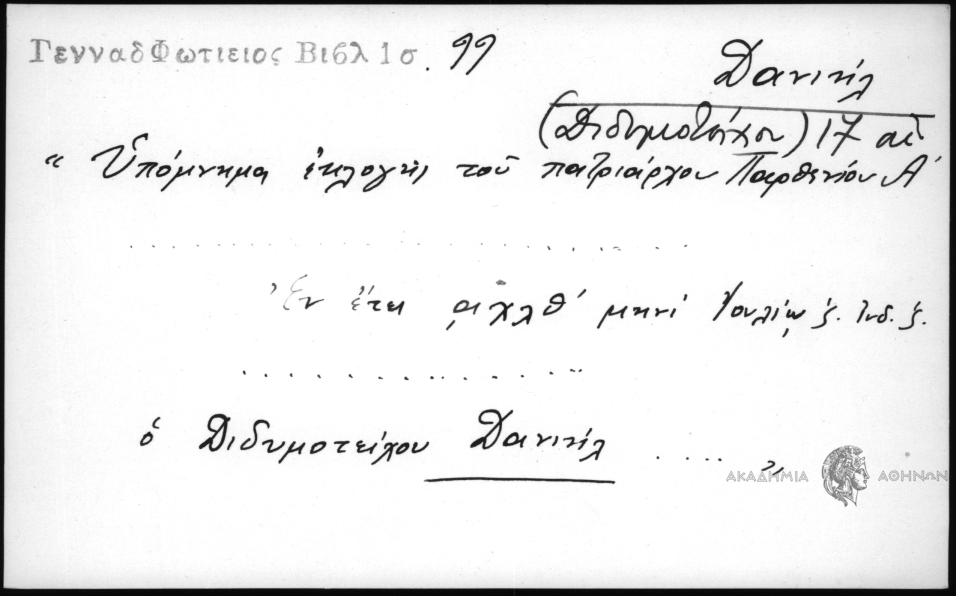 Γενναδ Φωτιειος Βιβλ 1 σ. 99
Δανιήλ
(Διδυμοτείχου) 17 αἰ
" Ὑπόμνημα ἐκλογῆς τοῦ πατριάρχου Παρθενίου Α'
. . . . . . . . . . . . . . . . . . . . . . . . .
Ἐν ἔτει ͵αχλθ' μηνί Ἰουλίῳ ζ. Ἰνδ. ζ.
. . . . . . . . . . . . . .
ὁ Διδυμοτείχου Δανιήλ ..... "
ΑΚΑΔΗΜΙΑ ΑΘΗΝΩΝ